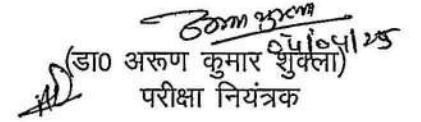 04/04/25
(डा0 अरूण कुमार शुक्ला)
परीक्षा नियंत्रक